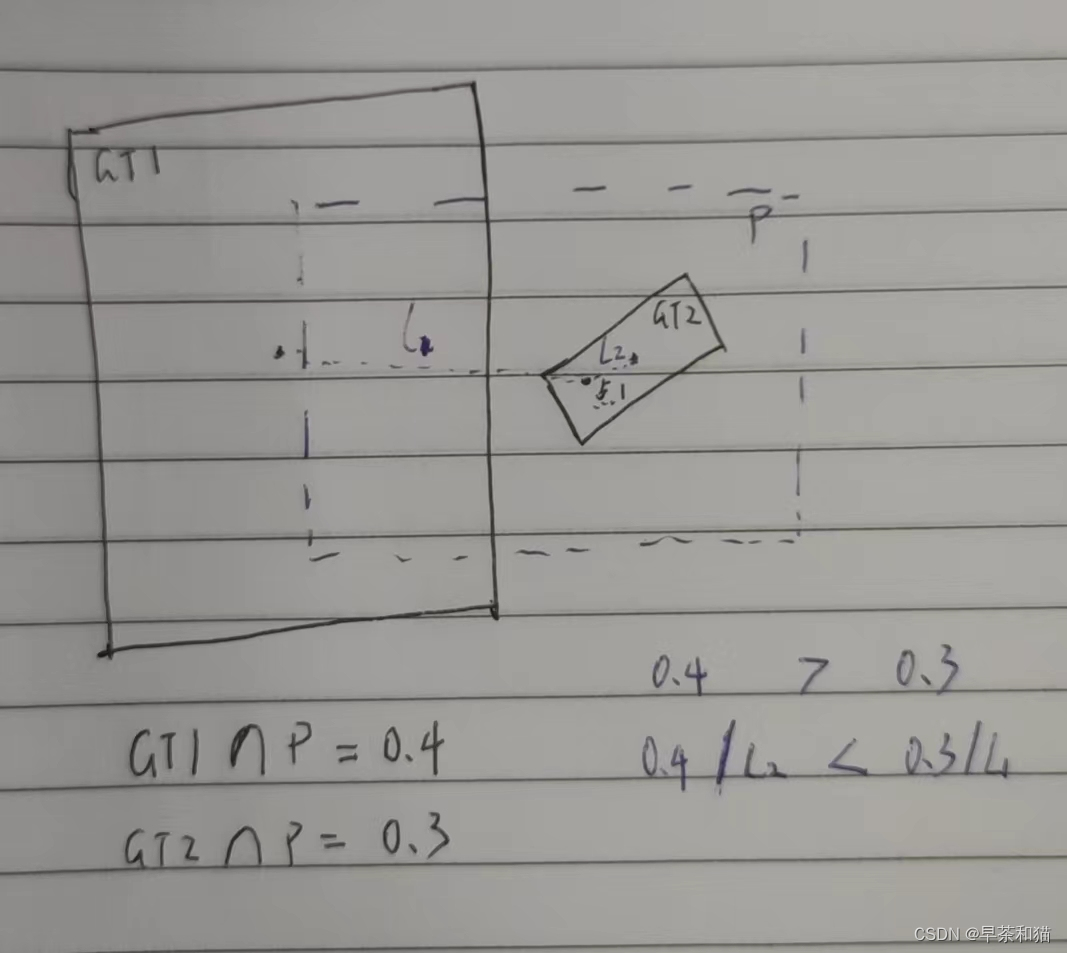 GT1
P
GT2
L₂
点1
0.4 > 0.3
GT1 ∩ P = 0.4
0.4 / L₂ < 0.3 / L₁
GT2 ∩ P = 0.3
CSDN @早茶和猫